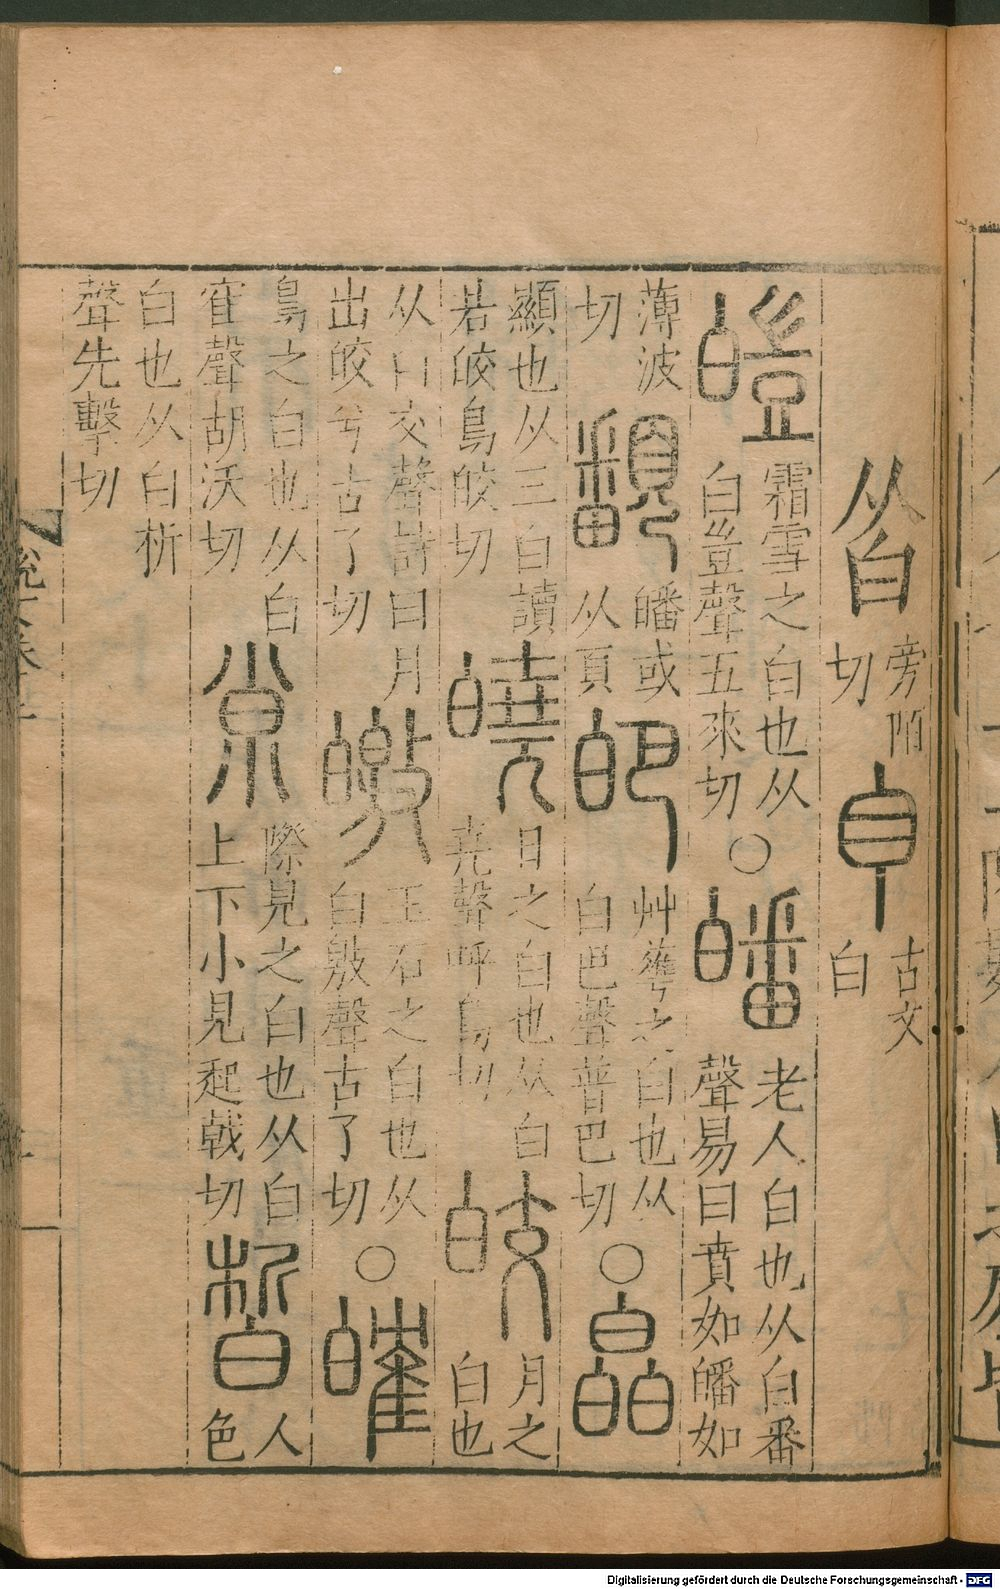 从白 旁陌切 𦣺 古文白
皚 霜雪之白也从白豈聲五來切 ○ 皤 老人白也从白番聲易曰賁如皤如
薄波切 𩕏 皤或从頁 皅 艸華之白也从白巴聲普巴切 ○ 皛
顯也从三白讀若皎烏皎切 皢 日之白也从白堯聲呼鳥切 皎 月之白也
从白交聲詩曰月出皎兮古了切 皦 玉石之白也从白敫聲古了切 ○ 㿥
鳥之白也从白隺聲胡沃切 𡭽 際見之白也从白上下小見起戟切 皙 人色
白也从白析聲先擊切
Digitalisierung gefördert durch die Deutsche Forschungsgemeinschaft - DFG